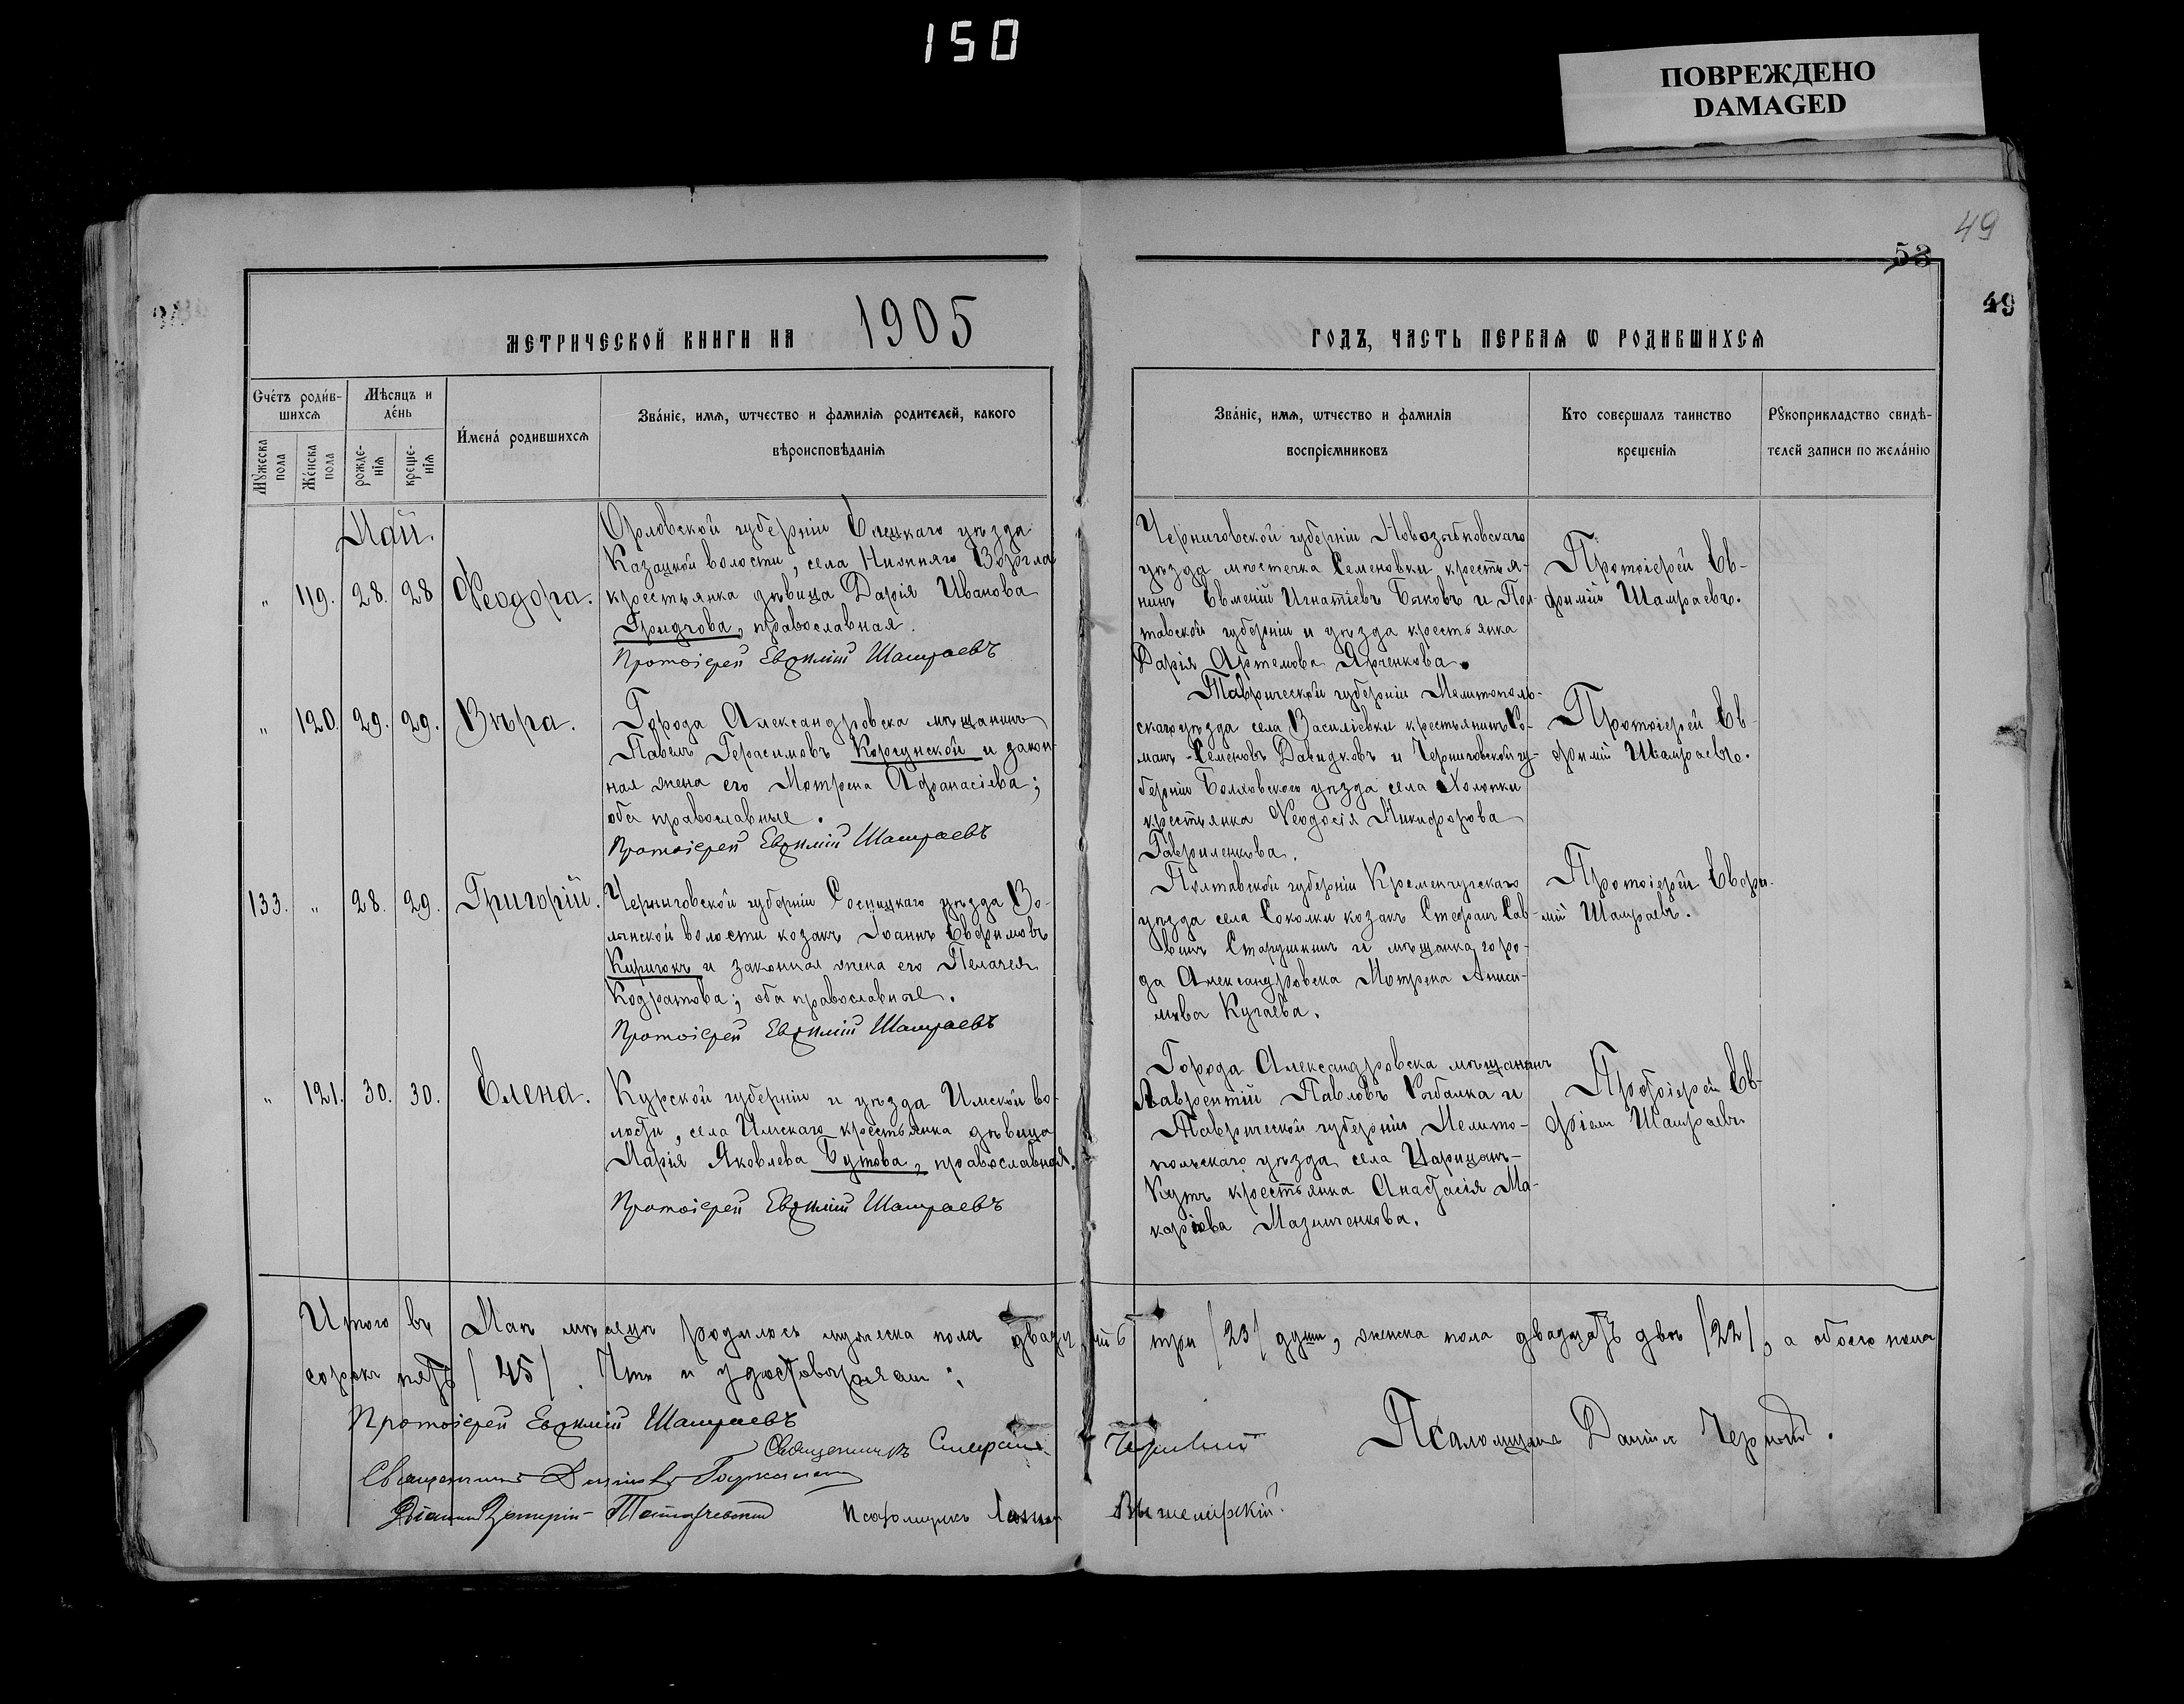 150
ПОВРЕЖДЕНО
DAMAGED
49
53
49
МЕТРИЧЕСКОЙ КНИГИ НА 1905
ГОДЪ, ЧАСТЬ ПЕРВАЯ Ѡ РОДИВШИХСЯ
Счетъ родив-
шихся
Мѣсяцъ и
день
Мужеска
пола
Женска
пола
рожде-
нія
креще-
нія
Имена родившихся
Званіе, имя, ѿчество и фамилія родителей, какого
вѣроисповѣданія
Званіе, имя, ѿчество и фамилія
воспріемниковъ
Кто совершалъ таинство
крещенія
Рукоприкладство свидѣ-
телей записи по желанію
Май.
" 119. 28. 28 Ѳеодора.
Орловской губерніи Елецкаго уѣзда
Казацкой волости, села Нижняго
крестьянка дѣвица Дарія Иванова
Гридчова, православная.
Протоіерей Евфимій Шамраевъ
Черниговской губерніи Новозыбковскаго
уѣзда мѣстечка Семеновки крестья-
нинъ Евмений Игнатіевъ Быковъ и Пол-
тавской губерніи и уѣзда крестьянка
Дарія Артемова Ярченкова.
Протоіерей Ев-
фимій Шамраевъ.
" 120. 29. 29. Вѣра.
Города Александровска мѣщанинъ
Павелъ Герасимовъ Корсунской и закон-
ная жена его Мотрона Афанасіева;
оба православные.
Протоіерей Евфимій Шамраевъ
Таврической губерніи Мелитополь-
скаго уѣзда села Василіевки крестьянинъ Ро-
манъ Семеновъ Давидковъ и Черниговской гу-
берніи уѣзда села Холопки
крестьянка Ѳеодосія Никифорова
Гавриленкова.
Протоіерей Ев-
фимій Шамраевъ.
133. " 28. 29. Григорій.
Черниговской губерніи Сосницкаго уѣзда Во-
лынской волости козакъ Іоаннъ Евфимовъ
Киричокъ и законная жена его Пелагея
Кодратова; оба православные.
Протоіерей Евфимій Шамраевъ
Полтавской губерніи Кременчугскаго
уѣзда села Соколки козакъ Стефанъ Сав-
винъ Старушкинъ и мѣщанка горо-
да Александровска Мотрона Аниси-
мова Кугаева.
Протоіерей Евфи-
мій Шамраевъ.
" 121. 30. 30. Елена.
Курской губерніи и уѣзда Ямской во-
лости, села Ямскаго крестьянка дѣвица
Марія Яковлева Бутова, православная.
Протоіерей Евфимій Шамраевъ
Города Александровска мѣщанинъ
Лаврентій Павловъ Рыбалка и
Таврической губерніи Мелито-
польскаго уѣзда села Царицынъ-
Кутъ крестьянка Анастасія Ма-
каріева Мазниченкова.
Протоіерей Ев-
фімій Шамраевъ
Итого въ Маѣ мѣсяцѣ родилось мужеска пола двадцать три /23/ души, женска пола двадцать двѣ /22/, а обоего пола
сорокъ пять /45/. Что и удостовѣряемъ:
Протоіерей Евфимій Шамраевъ
Священникъ
Псаломщикъ Даніилъ Черный.
Священникъ
Діаконъ
Псаломщикъ